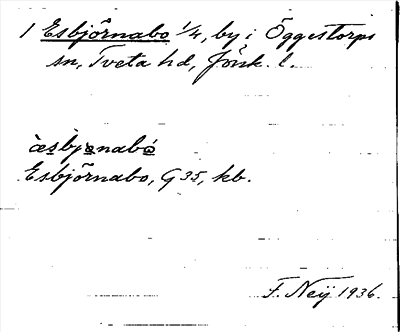 1 Esbjörnabo 1/4, by i Öggestorps
sn, Tveta hd, Jönk. l.
æ̀sbjənabó
Esbjörnabo, G 35, kb.
F. Neÿ 1936.